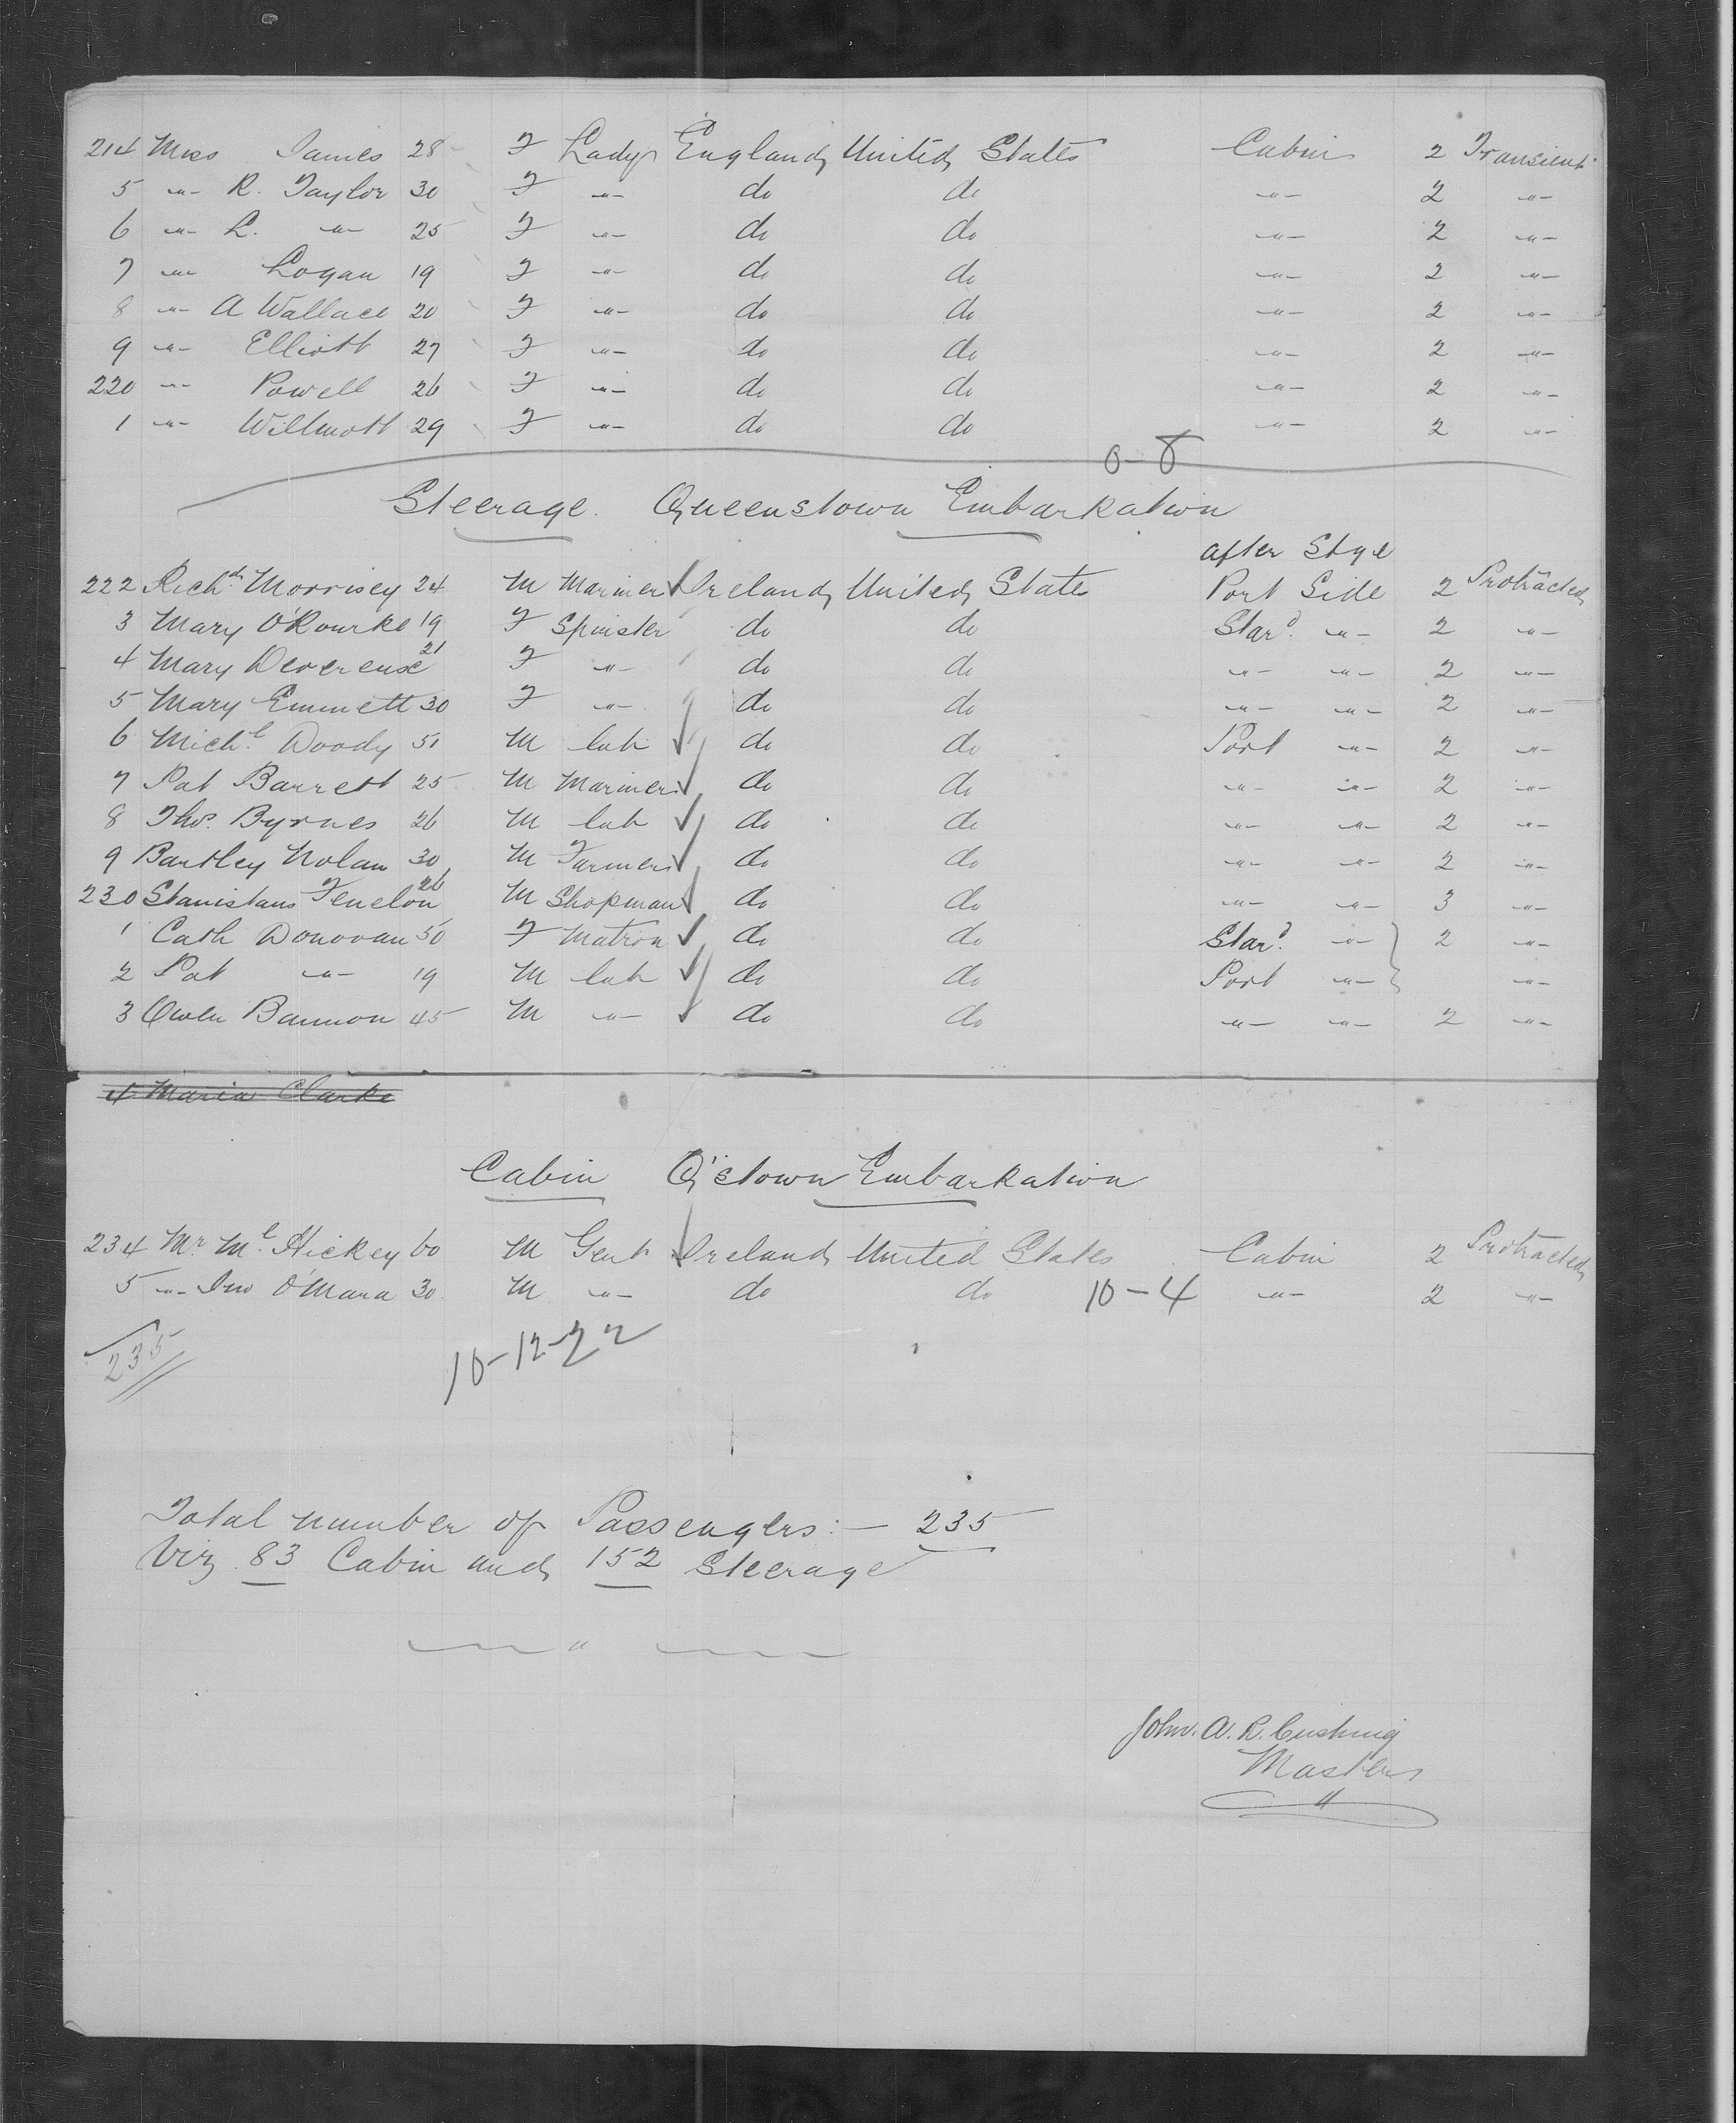 214 Miss James 28 F Lady England United States Cabin 2 Transient
5 -"- R. Taylor 30 F -"- do do -"- 2 -"-
6 -"- L. -"- 25 F -"- do do -"- 2 -"-
7 -"- Logan 19 F -"- do do -"- 2 -"-
8 -"- A Wallace 20 F -"- do do -"- 2 -"-
9 -"- Elliott 27 F -"- do do -"- 2 -"-
220 -"- Powell 26 F -"- do do -"- 2 -"-
1 -"- Willmott 29 F -"- do do -"- 2 -"-
0-8
Steerage. Queenstown Embarkation
after Stge
222 Richd. Morrisey 24 M Mariner Ireland United States Port Side 2 Protracted
3 Mary O'Rourke 19 F Spinster do do Stard. -"- 2 -"-
4 Mary Devereux 21 F -"- do do -"- -"- 2 -"-
5 Mary Emmett 30 F -"- do do -"- -"- 2 -"-
6 Michl. Doody 51 M lab do do Port -"- 2 -"-
7 Pat Barrett 25 M Mariner do do -"- -"- 2 -"-
8 Thos. Byrnes 26 M lab do do -"- -"- 2 -"-
9 Bartley Nolan 30 M Farmer do do -"- -"- 2 -"-
230 Stanistaus Fenelon 26 M Shopman do do -"- -"- 3 -"-
1 Cath Donovan 50 F Matron do do Stard. -"- } 2 -"-
2 Pat -"- 19 M lab do do Port -"- -"-
3 Owen Bannon 45 M -"- do do -"- -"- 2 -"-
4 Maria Clarke
Cabin Q'stown Embarkation
234 Mr. Ml. Hickey 60 M Gent Ireland United States Cabin 2 Protracted
5 -"- Jno O'Mara 30 M -"- do do 10-4 -"- 2 -"-
235
10-12-22
Total number of Passengers:- 235
Viz 83 Cabin and 152 Steerage
John. A. R. Cushing
Master